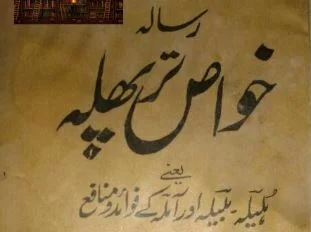 رسالہ
خواص تربھلہ
یعنی
ہلیلہ۔ بلیلہ اور آملہ کے فوائد و منافع